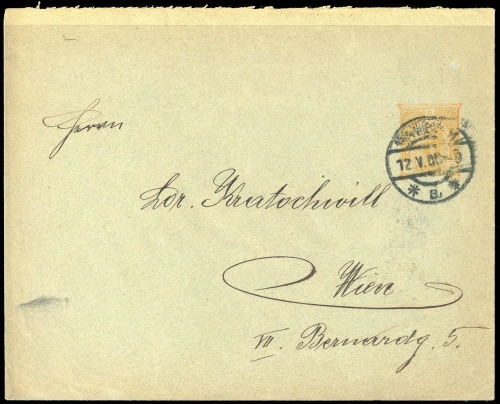 Herrn
Dr. Kratochwill
Wien
VII. Bernardg. 5.
WIEN
12.V.06
* a. *